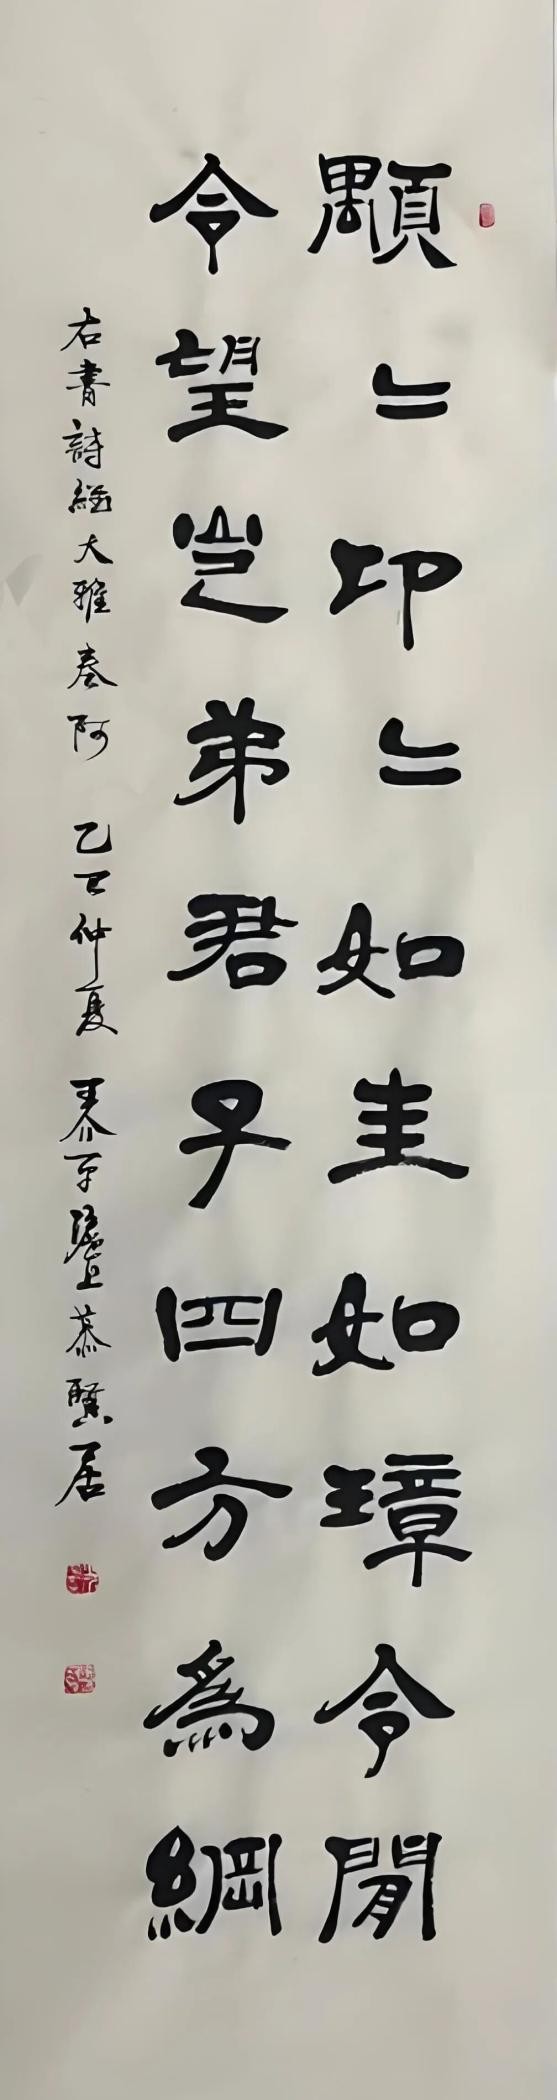 顒〻卬〻如圭如璋令聞
令望岂弟君子四方為綱
右書詩經大雅卷阿 乙巳仲夏 慕賢居